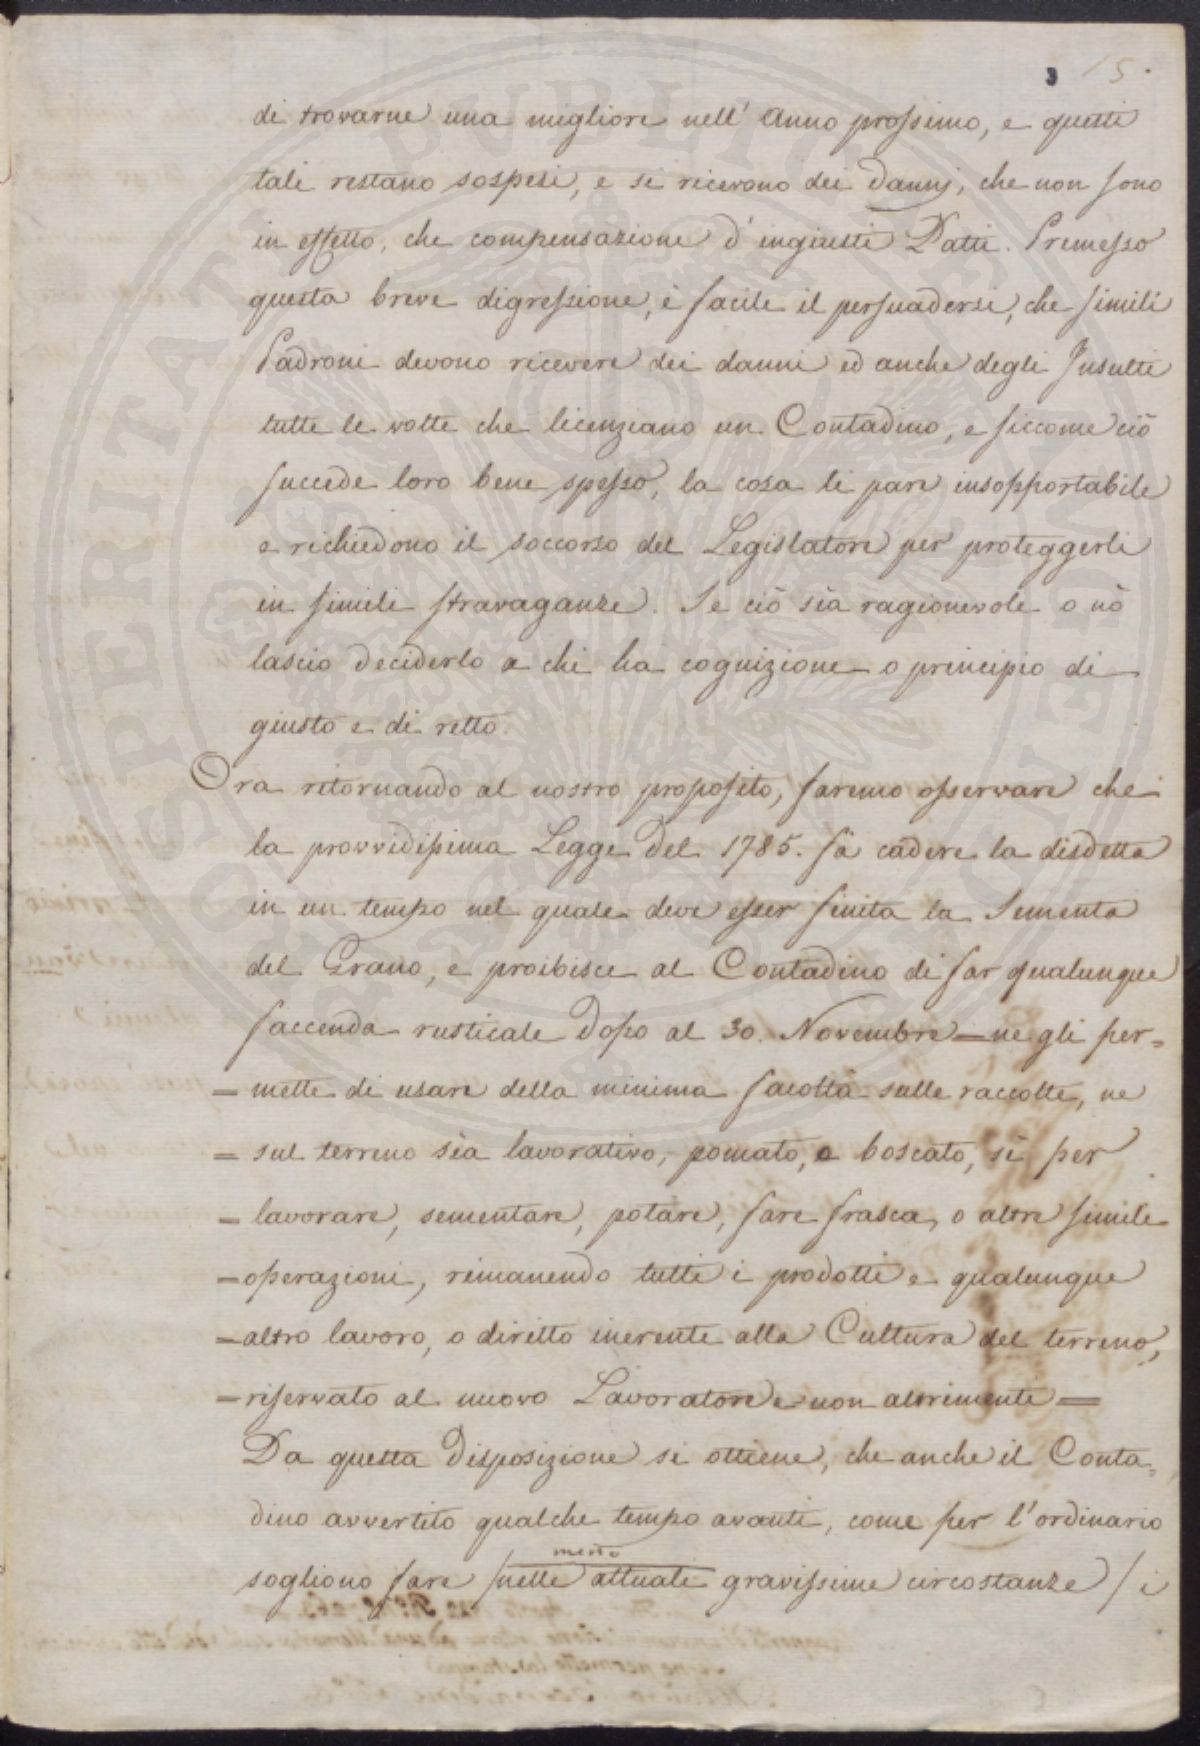 3 15.
di trovarne una migliore nell' Anno prossimo, e questi
tali restano sospesi, e si ricevono dei Dannj, che non sono
in effetto, che compensazione d' ingiusti Patti. Premesso
questa breve digressione, è facile il persuadersi, che simili
Padroni devono ricevere dei danni ed anche degli Insulti
tutte le volte che licenziano un Contadino, e siccome ciò
succede loro bene spesso, la cosa li pare insopportabile
e richiedono il soccorso del Legislatore per proteggerli
in simili stravaganze. Se ciò sìa ragionevole o nò
lascio deciderlo a chi ha cognizione o principio di
giusto e di retto.
Ora ritornando al nostro proposito, faremo osservare che
la provvidissima Legge del 1785. fà cadere la disdetta
in un tempo nel quale deve esser finita la Sementa
del Grano, e proibisce al Contadino di far qualunque
faccenda rusticale dopo al 30. Novembre = ne gli per=
= mette di usare della minima facoltà sulle raccolte, ne
= sul terreno sìa lavorativo, pomato, o boscato, sì per
= lavorare, sementare, potare, fare frasca, o altre simile
= operazioni, rimanendo tutti i prodotti e qualunque
= altro lavoro, o diritto inerente alla Cultura del terreno,
= riservato al nuovo Lavoratore e non altrimenti =
Da questa Disposizione si ottiene, che anche il Conta=
dino avvertito qualche tempo avanti, come per l' ordinario
meno
sogliono fare / nelle attuali gravissime circostanze / i
PROSPERITATI PVBLICAE AVGENDAE